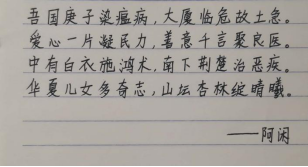 吾国庚子染瘟病，大厦临危故土急。
爱心一片凝民力，善意千言聚良医。
中有白衣施鸿术，南下荆楚治恶疾。
华夏儿女多奇志，山坛杏林绽晴曦。
——阿闲